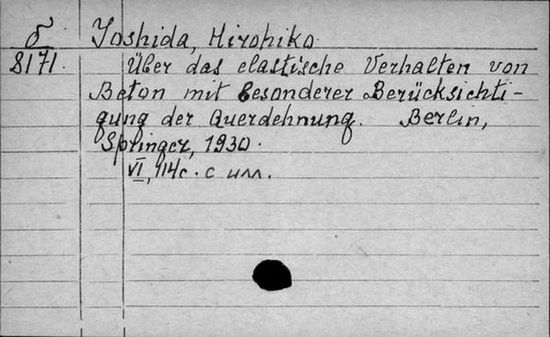 Б Yoshida, Hirohiko
8171. Über das elastische Verhalten von
Beton mit besonderer Berücksichti-
gung der Querdehnung. Berlin,
Springer, 1930.
VI, 114 с. с илл.